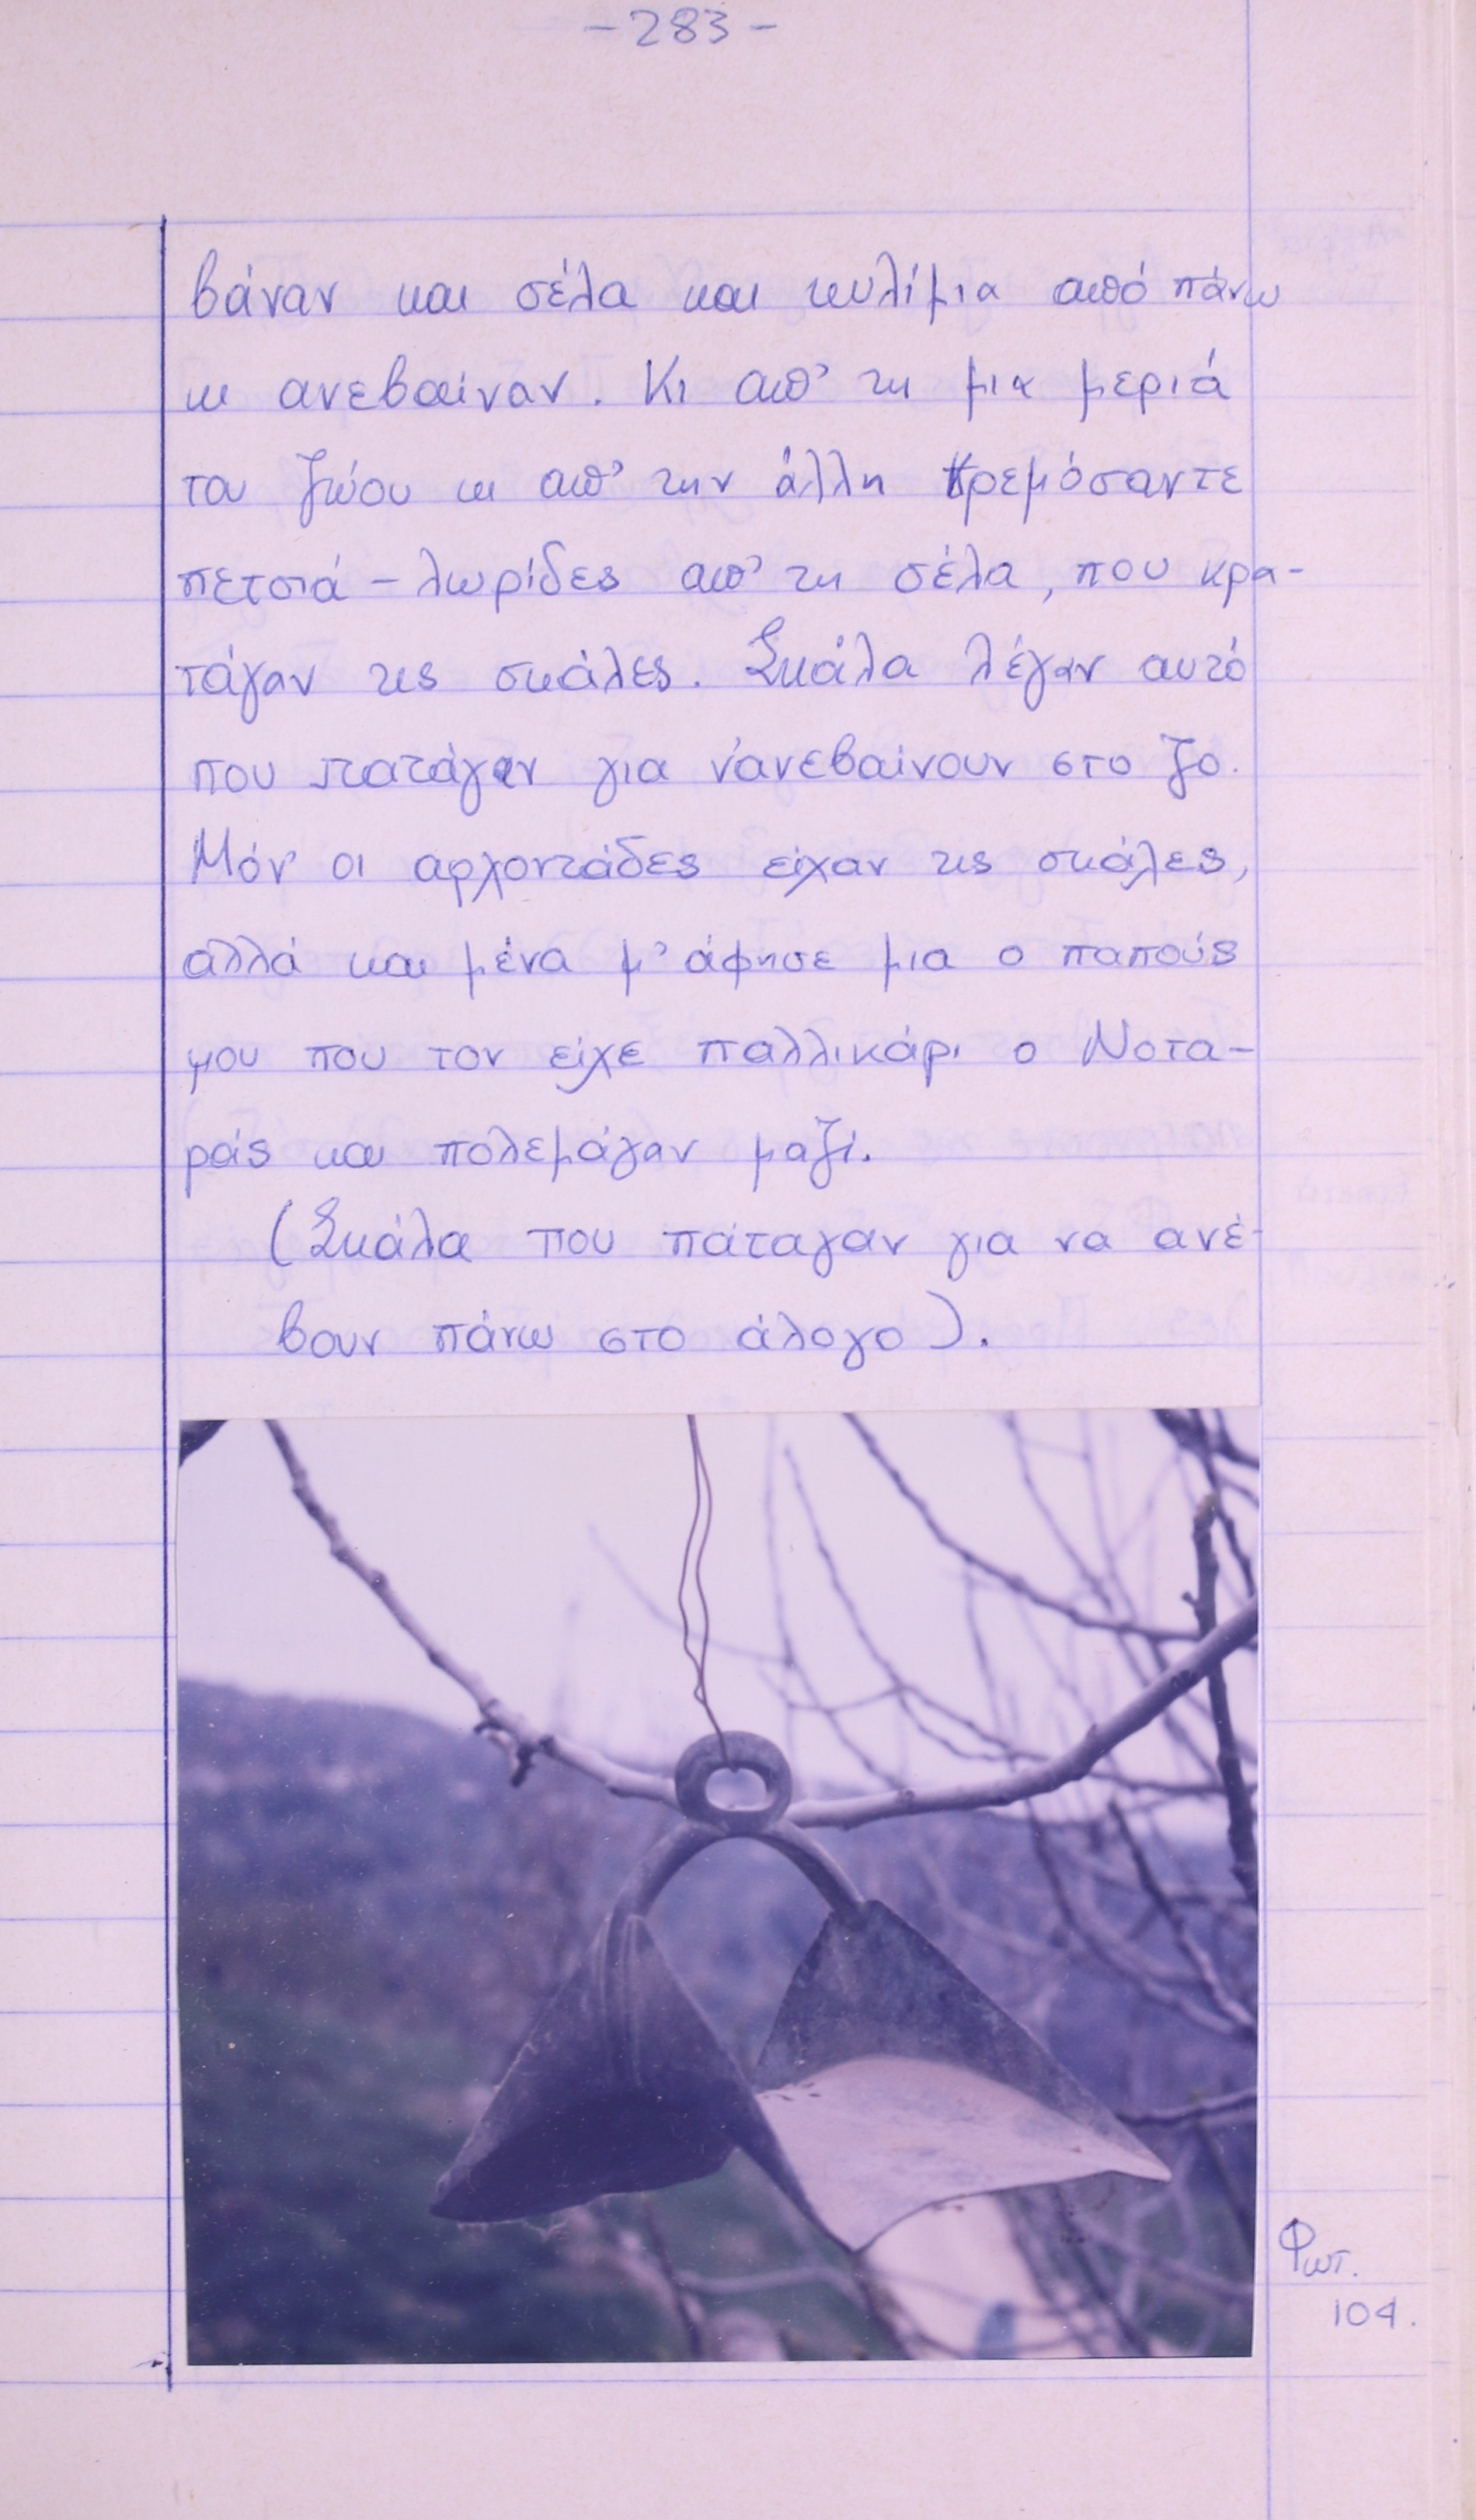 -283-
βάναν και σέλα και κυλίμια από πάνω
κι ανεβαίναν. Κι απ' τη μια μεριά
του ζώου κι απ' την άλλη κρεμόσαντε
πετσιά - λωρίδες απ' τη σέλα, που κρα-
τάγαν τις σκάλες. Σκάλα λέγαν αυτό
που πατάγαν για ν'ανεβαίνουν στο ζο.
Μόν' οι αρχοντάδες είχαν τις σκάλες,
αλλά και μένα μ' άφησε μια ο παπούς
μου που τον είχε παλλικάρι ο Νοτα-
ράς και πολεμάγαν μαζί.
(Σκάλα που πάταγαν για να ανέ-
βουν πάνω στο άλογο).
Φωτ.
104.